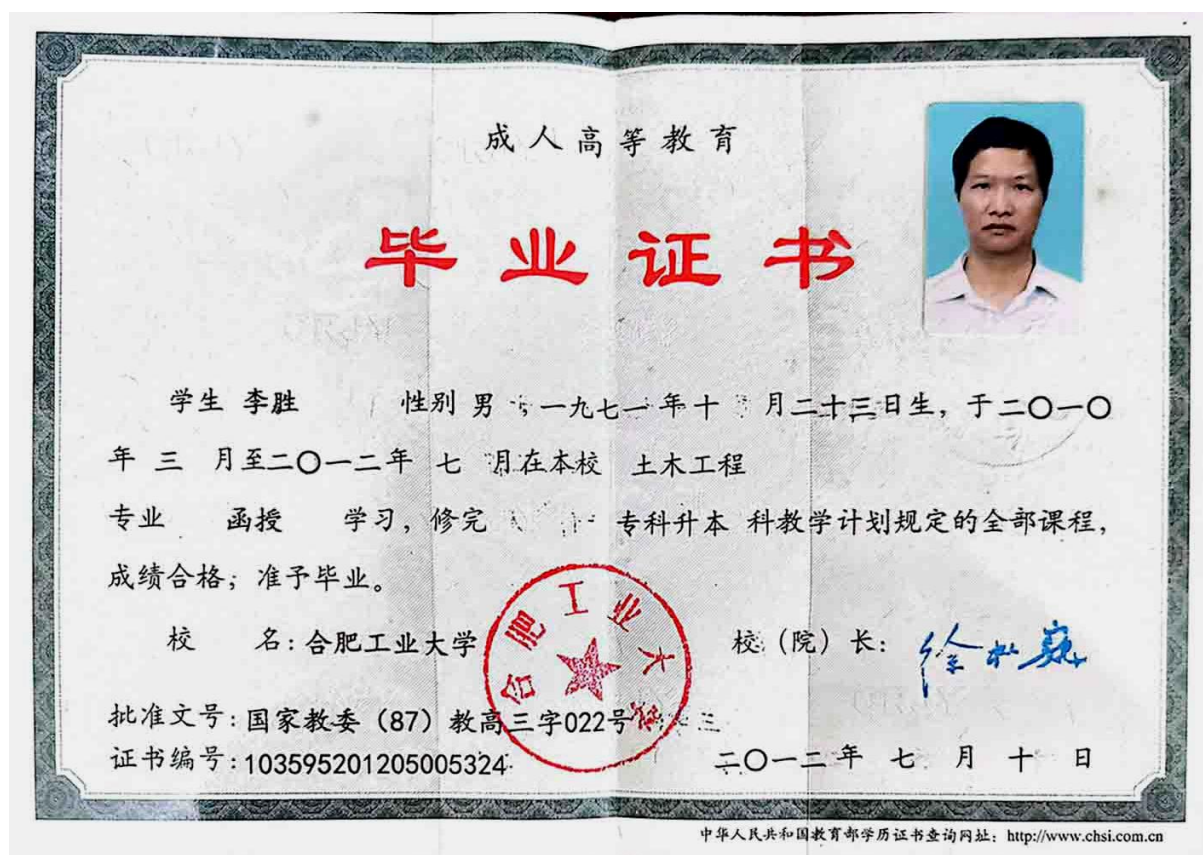 成人高等教育
毕业证书
学生 李胜 性别 男 一九七一年十 月二十三日生，于二〇一〇
年 三 月至二〇一二年 七 月在本校 土木工程
专业 函授 学习，修完 专科升本 科教学计划规定的全部课程，
成绩合格，准予毕业。
校 名：合肥工业大学
校（院）长：
合肥工业大学
批准文号：国家教委（87）教高三字022号
证书编号：103595201205005324
二〇一二年 七 月 十 日
中华人民共和国教育部学历证书查询网址：http://www.chsi.com.cn